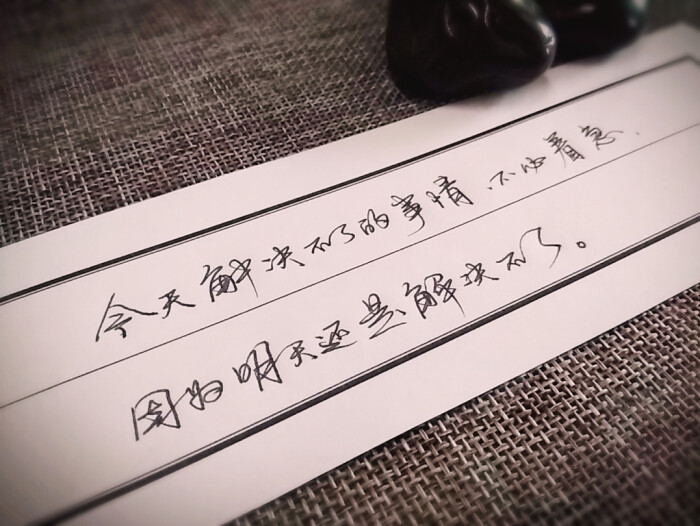 今天解决不了的事情、不必着急.
因为明天还是解决不了。